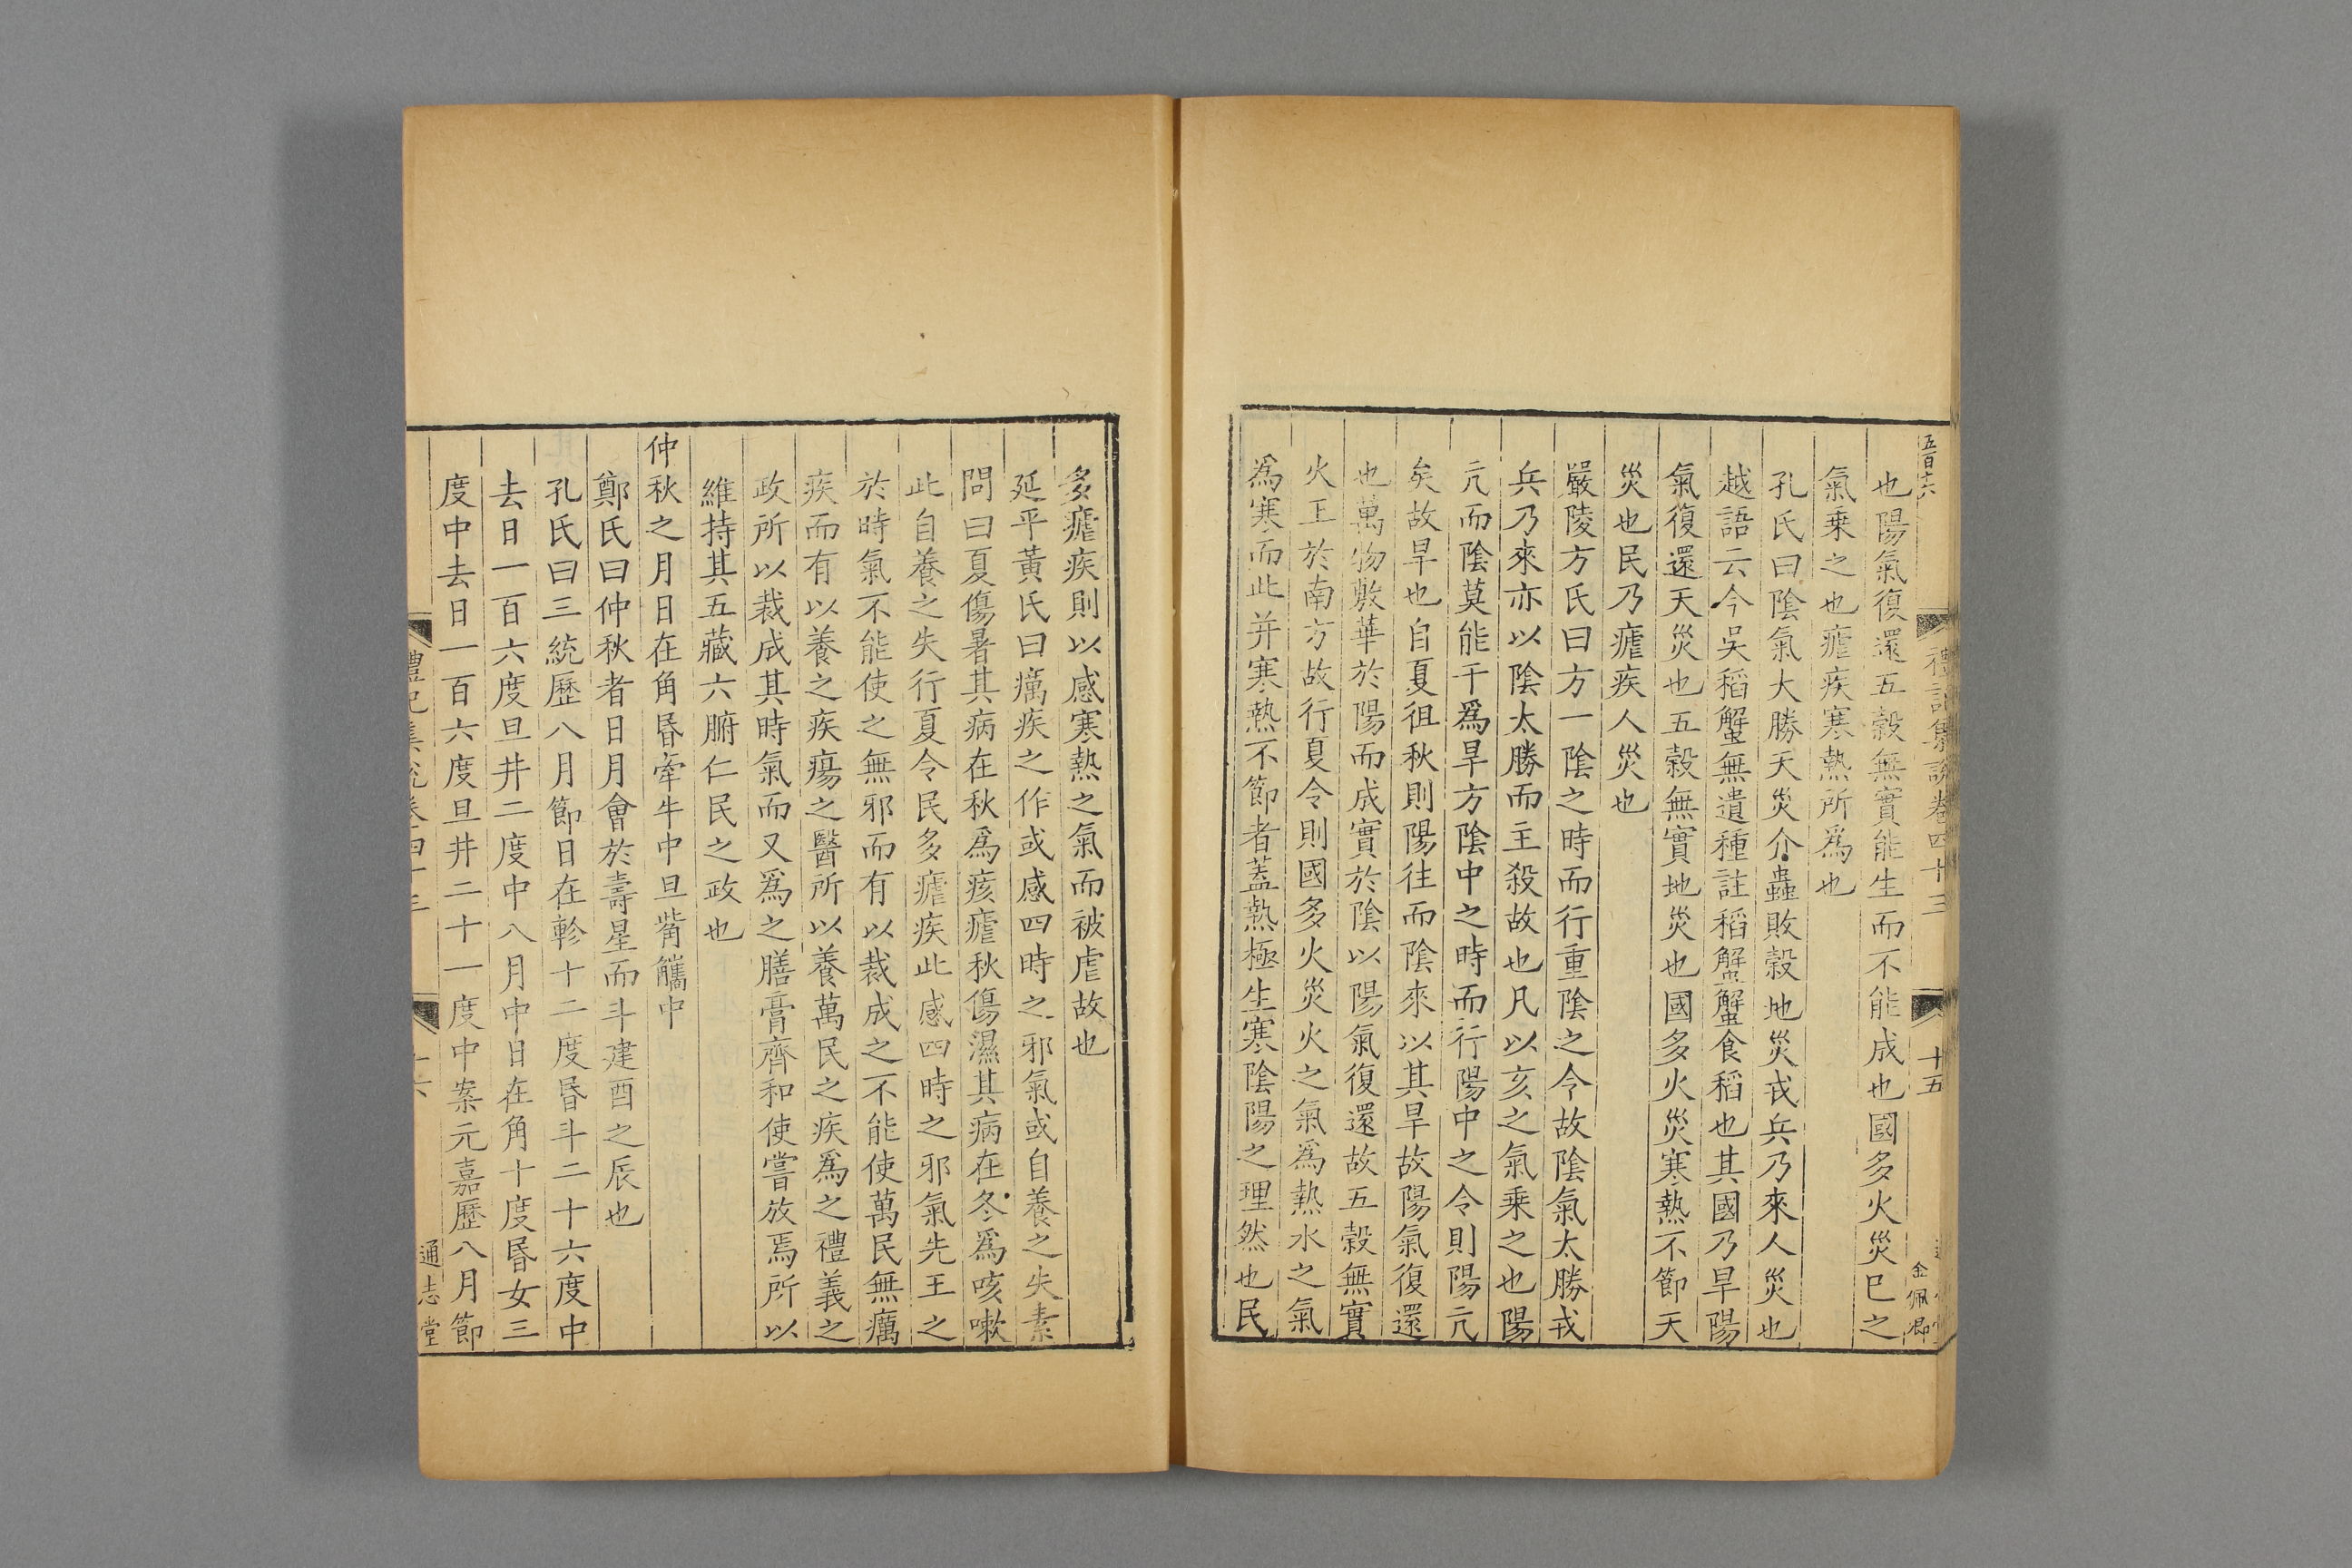 五百六
禮記集說卷四十三
十五
金佩卿
也陽氣復還五穀無實能生而不能成也國多火災巳之
氣乗之也瘧疾寒熱所爲也
孔氏曰陰氣大勝天災介蟲敗穀地災戎兵乃來人災也
越語云今吳稻蟹無遺種註稻蟹蟹食稻也其國乃旱陽
氣復還天災也五穀無實地災也國多火災寒熱不節天
災也民乃瘧疾人災也
嚴陵方氏曰方一陰之時而行重陰之令故陰氣太勝戎
兵乃來亦以陰太勝而主殺故也凡以亥之氣乗之也陽
亢而陰莫能干爲旱方陰中之時而行陽中之令則陽亢
矣故旱也自夏徂秋則陽往而陰來以其旱故陽氣復還
也萬物敷華於陽而成實於陰以陽氣復還故五穀無實
火王於南方故行夏令則國多火災火之氣爲熱水之氣
爲寒而此并寒熱不節者蓋熱極生寒陰陽之理然也民
多瘧疾則以感寒熱之氣而被虐故也
延平黃氏曰癘疾之作或感四時之邪氣或自養之失素
問曰夏傷暑其病在秋爲痎瘧秋傷濕其病在冬爲咳嗽
此自養之失行夏令民多瘧疾此感四時之邪氣先王之
於時氣不能使之無邪而有以裁成之不能使萬民無癘
疾而有以養之疾瘍之醫所以養萬民之疾爲之禮義之
政所以裁成其時氣而又爲之膳膏齊和使嘗放焉所以
維持其五藏六腑仁民之政也
仲秋之月日在角昬牽牛中旦觜觿中
鄭氏曰仲秋者日月會於壽星而斗建酉之辰也
孔氏曰三統歷八月節日在軫十二度昬斗二十六度中
去日一百六度旦井二度中八月中日在角十度昬女三
度中去日一百六度旦井二十一度中案元嘉歷八月節
禮記集說卷四十三
十六
通志堂